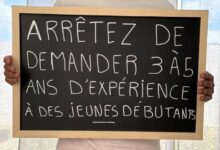 ARRÊTEZ DE
DEMANDER 3 À 5
ANS D'EXPÉRIENCE
À DES JEUNES DÉBUTANTS